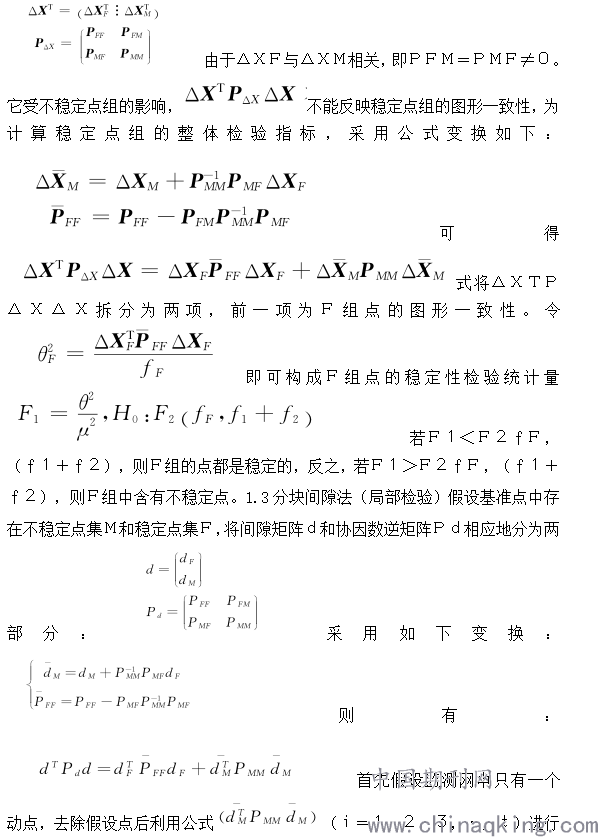 ΔX^T = (ΔX_F^T ⋮ ΔX_M^T)
P_ΔX = [P_FF P_FM
P_MF P_MM]
由于△ＸＦ与△ＸＭ相关，即ＰＦＭ＝ＰＭＦ≠０。
它受不稳定点组的影响，ΔX^T P_ΔX ΔX 不能反映稳定点组的图形一致性，为
计算稳定点组的整体检验指标，采用公式变换如下：
ΔX̄_M = ΔX_M + P_MM^{-1} P_MF ΔX_F
P̄_FF = P_FF − P_FM P_MM^{-1} P_MF
可得
ΔX^T P_ΔX ΔX = ΔX_F P̄_FF ΔX_F + ΔX̄_M P_MM ΔX̄_M 式将△ＸＴＰ
△Ｘ△Ｘ拆分为两项，前一项为Ｆ组点的图形一致性。令
θ_F^2 = ΔX_F^T P̄_FF ΔX_F / f_F 即可构成Ｆ组点的稳定性检验统计量
F_1 = θ^2 / μ^2 , H_0 : F_2 (f_F , f_1 + f_2)
若Ｆ１＜Ｆ２ｆＦ，
（ｆ１＋ｆ２），则Ｆ组的点都是稳定的，反之，若Ｆ１＞Ｆ２ｆＦ，（ｆ１＋
ｆ２），则Ｆ组中含有不稳定点。1.3分块间隙法（局部检验）假设基准点中存
在不稳定点集Ｍ和稳定点集Ｆ，将间隙矩阵ｄ和协因数逆矩阵Ｐｄ相应地分为两
部分：
d = [d_F
d_M]
P_d = [P_FF P_FM
P_MF P_MM]
采用如下变换：
{ d̄_M = d_M + P_MM^{-1} P_MF d_F
P̄_FF = P_FF − P_MF P_MM^{-1} P_MF
则有：
d^T P_d d = d_F^T P̄_FF d_F + d̄_M^T P_MM d̄_M
首先假设监测网中只有一个
动点，去除假设点后利用公式 (d̄_M^T P_MM d̄_M)（ｉ＝１，２，３，…，ｔ）进行
中国期刊网
www.chinaqking.com